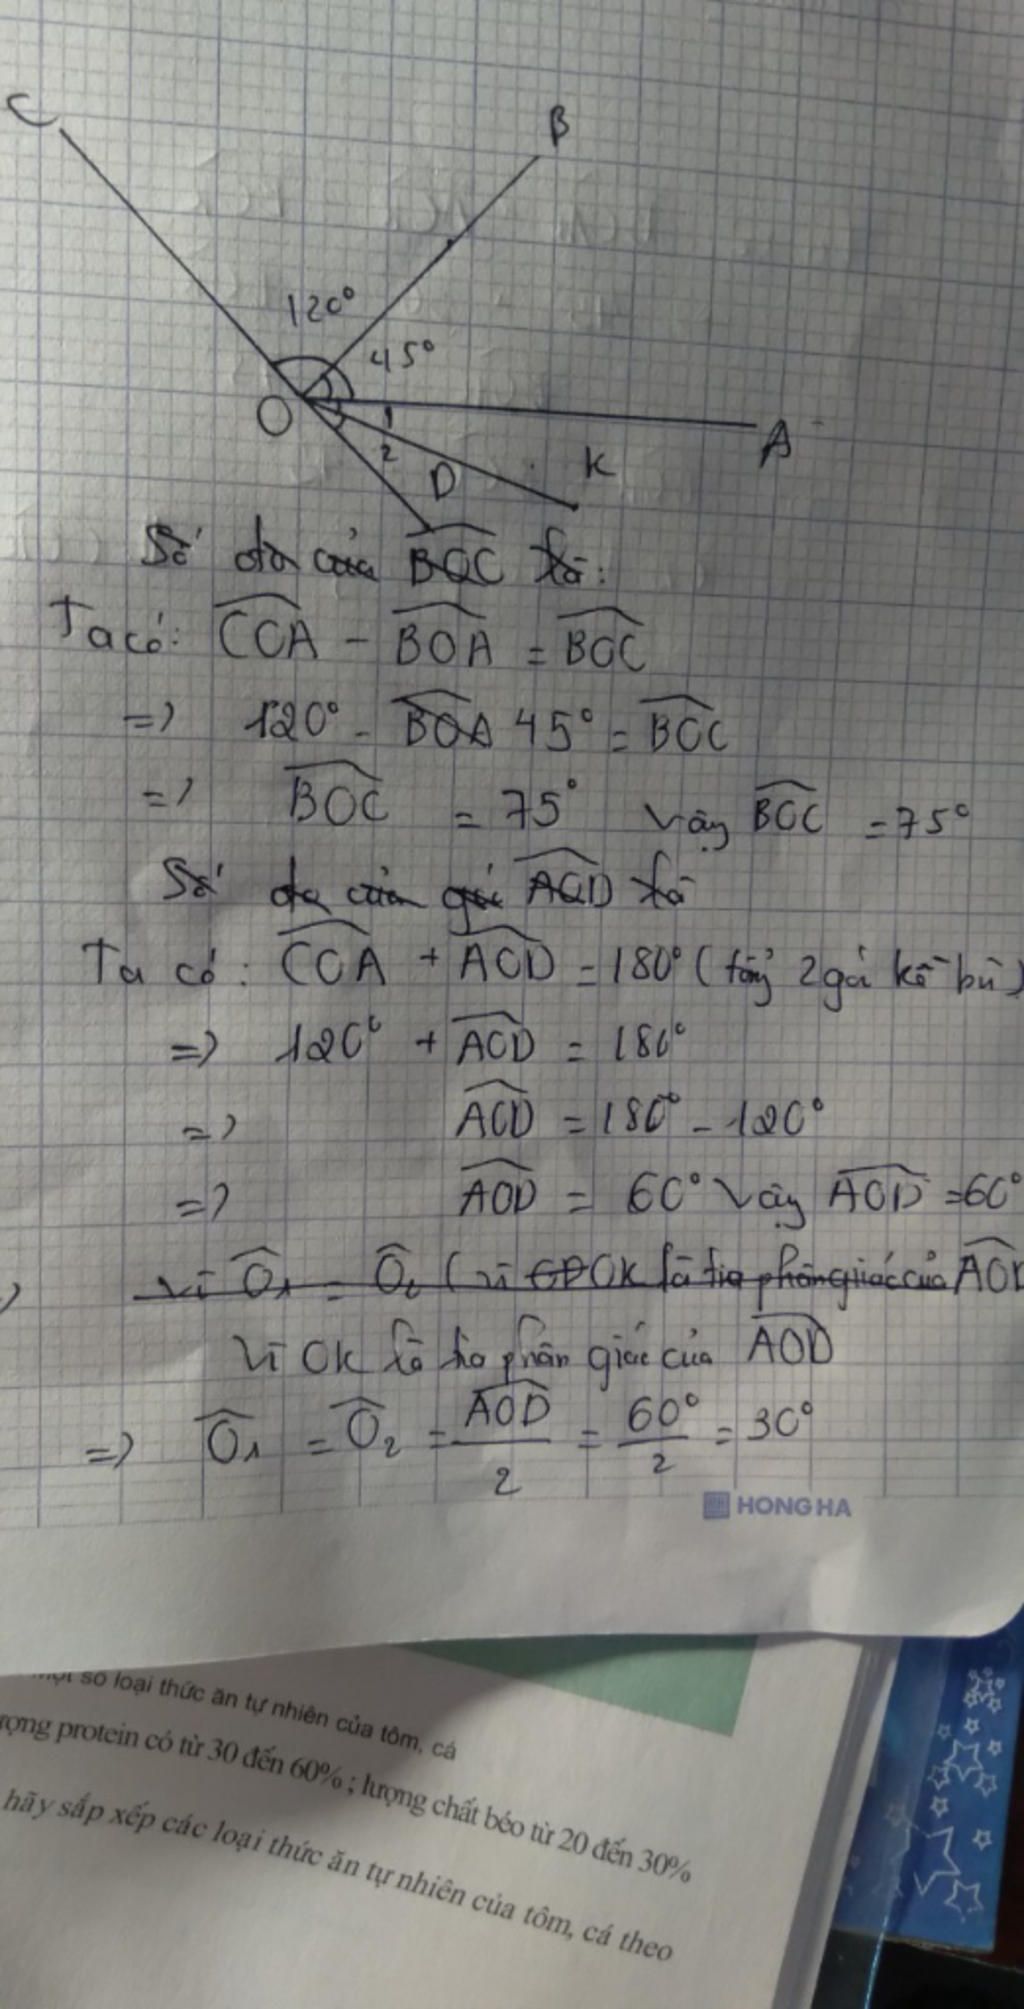 C
B
120°
45°
O
1
2
A
K
D
Số đo của BOC là:
Ta có: COA - BOA = BOC
=> 120° - BOA 45° = BOC
=> BOC = 75° Vậy BOC = 75°
Số đo của góc AOD là
Ta có: COA + AOD = 180° (tổng 2 góc kề bù)
=> 120° + AOD = 180°
=> AOD = 180° - 120°
=> AOD = 60° Vậy AOD = 60°
Vì O1 = O2 (vì OK là tia phân giác của AOD
Vì OK là tia phân giác của AOD
=> O1 = O2 = AOD/2 = 60°/2 = 30°
HONG HA
số loại thức ăn tự nhiên của tôm, cá
protein có từ 30 đến 60% ; lượng chất béo từ 20 đến 30%
hãy sắp xếp các loại thức ăn tự nhiên của tôm, cá theo